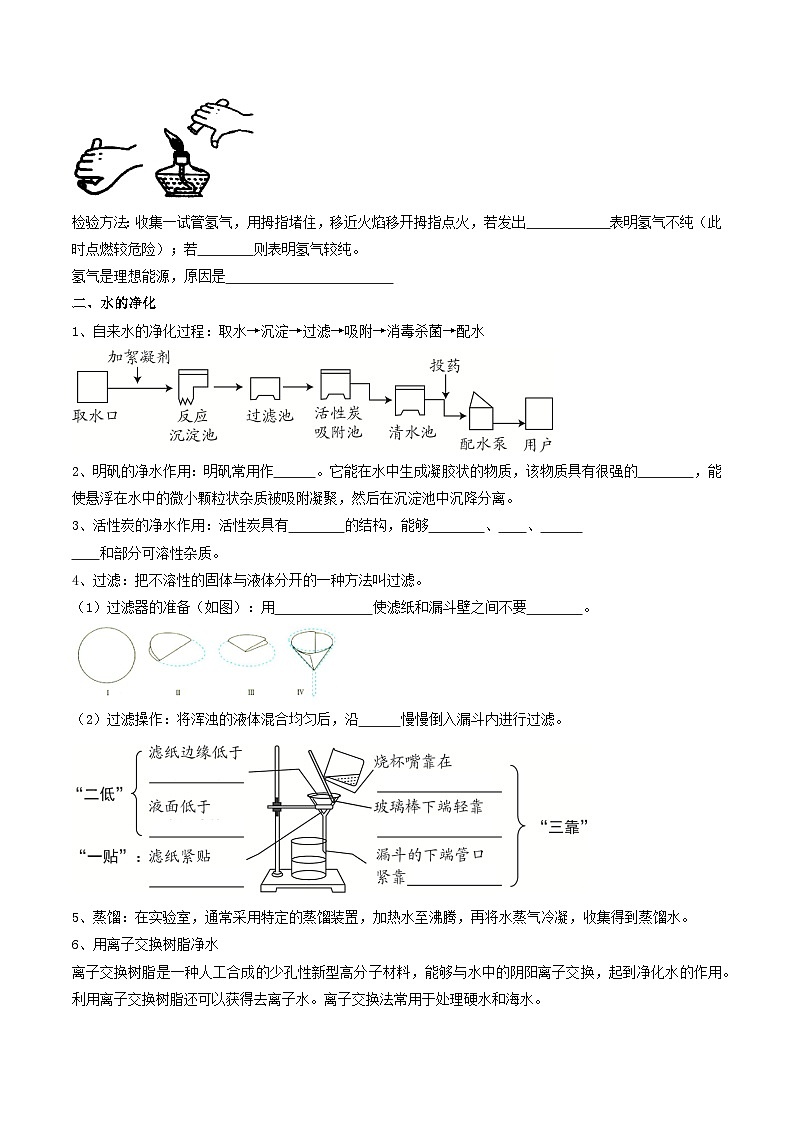 检验方法:收集一试管氢气，用拇指堵住，移近火焰移开拇指点火，若发出____________表明氢气不纯（此
时点燃较危险）;若________则表明氢气较纯。
氢气是理想能源，原因是________________________
二、水的净化
1、自来水的净化过程:取水→沉淀→过滤→吸附→消毒杀菌→配水
加絮凝剂
投药
取水口
反应
沉淀池
过滤池
活性炭
吸附池
清水池
配水泵
用户
2、明矾的净水作用:明矾常用作______。它能在水中生成凝胶状的物质，该物质具有很强的________，能
使悬浮在水中的微小颗粒状杂质被吸附凝聚，然后在沉淀池中沉降分离。
3、活性炭的净水作用:活性炭具有________的结构，能够________、____、______
____和部分可溶性杂质。
4、过滤:把不溶性的固体与液体分开的一种方法叫过滤。
（1）过滤器的准备（如图）:用______________使滤纸和漏斗壁之间不要________。
I II III IV
（2）过滤操作:将浑浊的液体混合均匀后，沿______慢慢倒入漏斗内进行过滤。
“二低”
滤纸边缘低于
______________
液面低于
______________
“一贴”:滤纸紧贴
______________
烧杯嘴靠在
__________________
玻璃棒下端轻靠
__________________
漏斗的下端管口
紧靠______________
“三靠”
5、蒸馏:在实验室，通常采用特定的蒸馏装置，加热水至沸腾，再将水蒸气冷凝，收集得到蒸馏水。
6、用离子交换树脂净水
离子交换树脂是一种人工合成的少孔性新型高分子材料，能够与水中的阴阳离子交换，起到净化水的作用。
利用离子交换树脂还可以获得去离子水。离子交换法常用于处理硬水和海水。